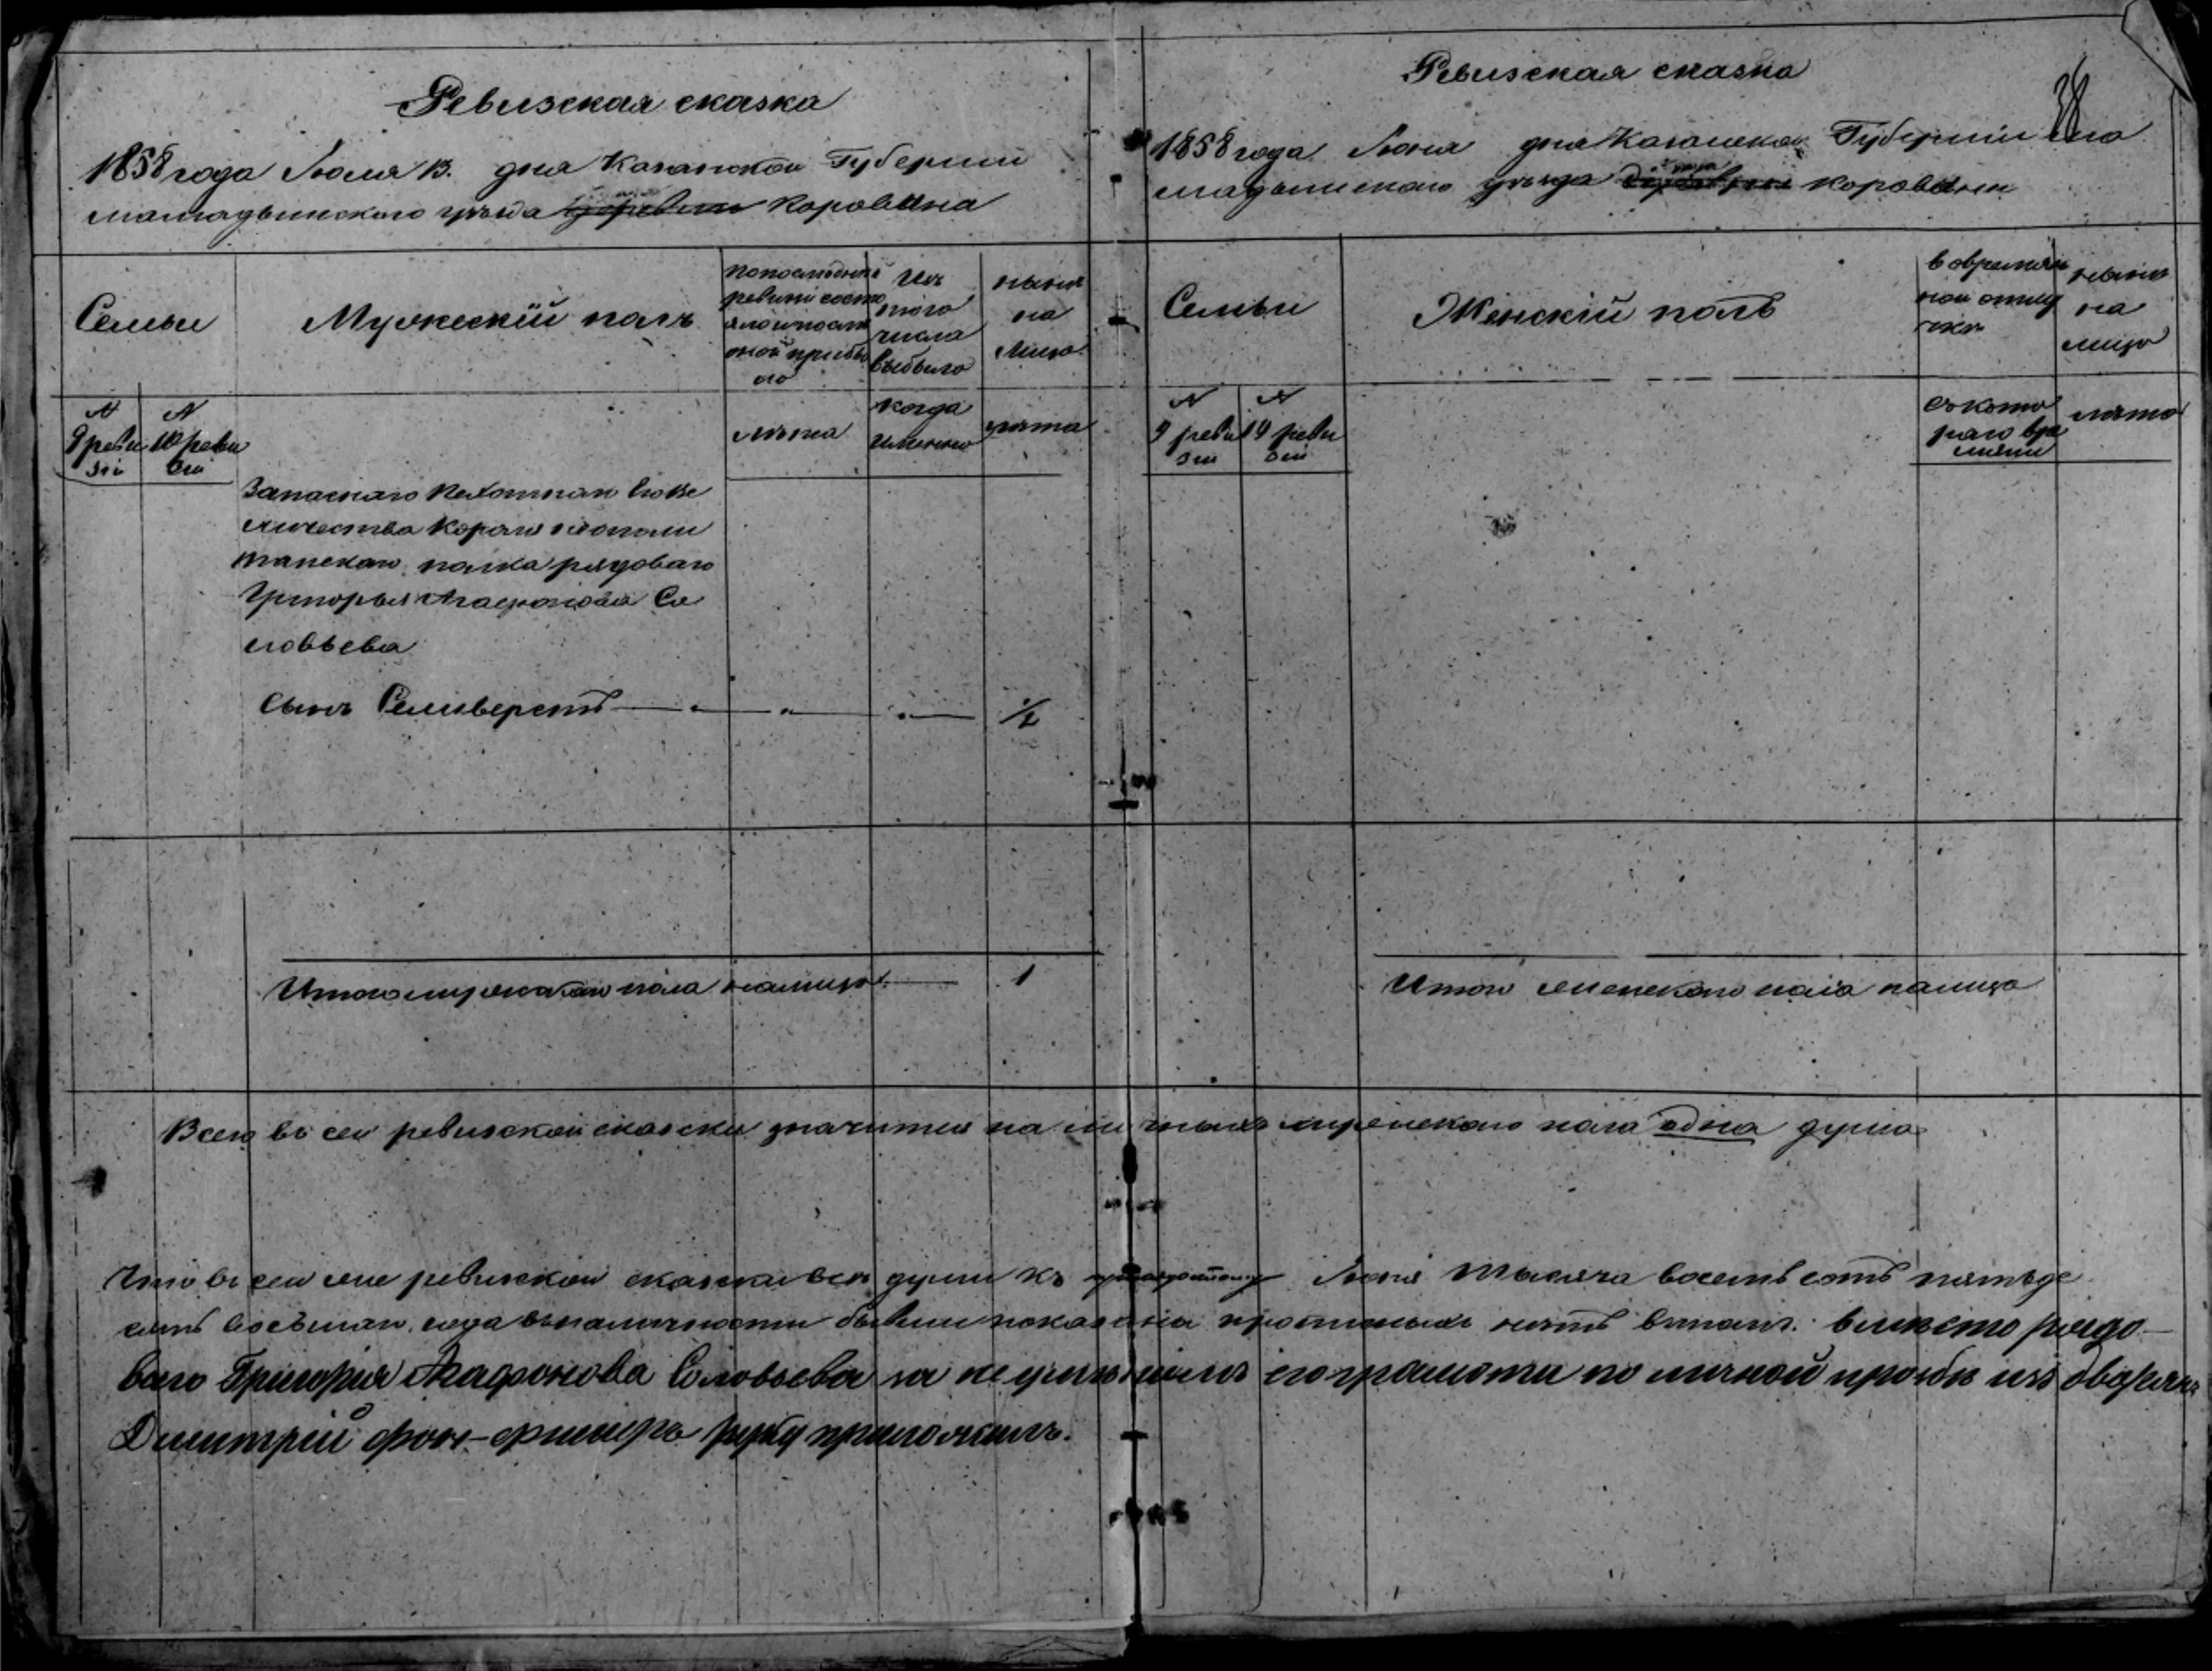 Ревизская сказка
1858 года Июля 13. дня Казанской Губерніи
мамадышскаго уѣзда Коровина
Семьи
Мужескій полъ
по последней
ревизіи состо
яло и после
оной прибы
ло
Изъ
того
числа
выбыло
ныня
на
лицо
N
9 реви
зіи
N
10 реви
зіи
лѣта
когда
именно
лѣта
Запаснаго Пехотнаго Его Ве
личества Короля Неополи
танскаго полка рядоваго
Григорья Агафонова Со
ловьева
Сынъ Селиверстъ 1/2
Итого мужескаго пола налицо 1
Ревизская сказка
38
1858 года Июня дня Казанской Губерніи Ма
мадышскаго уѣзда коровина
Семьи
Женскій полъ
во времян
ной отлу
чкѣ
нынѣ
на
лицо
N
9 реви
зіи
N
10 реви
зіи
съ кото
раго вре
мени
лѣта
Итого женскаго пола налицо
Всего въ сей ревизской сказки значится на личныхъ мужескаго пола одна душа
Что въ сей же ревизской сказки все души къ Июня тысяча восемьсотъ пятьде
сятъ восьмаго года въ наличности бывши показаны прописныхъ нѣтъ въ томъ: вмѣсто рядо-
ваго Григорья Агафонова Соловьева за неумѣніемъ его грамоты по личной прозбѣ изъ дворянъ
Димитрій фон-фишеръ руку приложилъ.